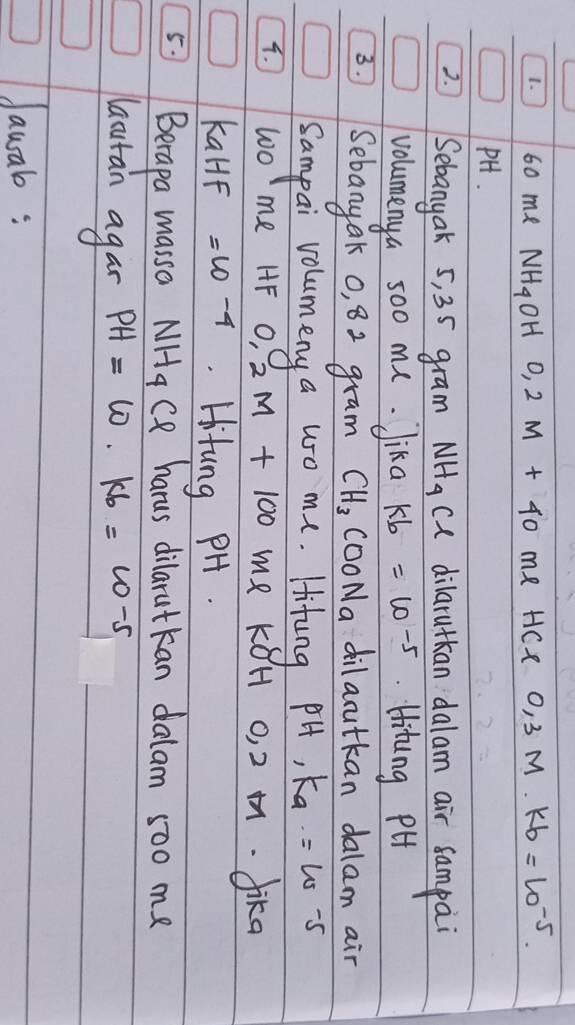 1. 60 ml NH4OH 0,2 M + 40 ml HCl 0,3 M. Kb = 10⁻⁵.
PH.
2. Sebanyak 5,35 gram NH4Cl dilarutkan dalam air sampai
volumenya 500 ml. Jika Kb = 10⁻⁵. Hitung PH
3. Sebanyak 0,82 gram CH3COONa dilarutkan dalam air
Sampai volumenya 100 ml. Hitung PH, Ka = 10⁻⁵
4. 100 ml HF 0,2 M + 100 ml KOH 0,2 M. Jika
KaHF = 10⁻⁴. Hitung PH.
5. Berapa massa NH4Cl harus dilarutkan dalam 500 ml
larutan agar PH = 10. Kb = 10⁻⁵
Jawab :